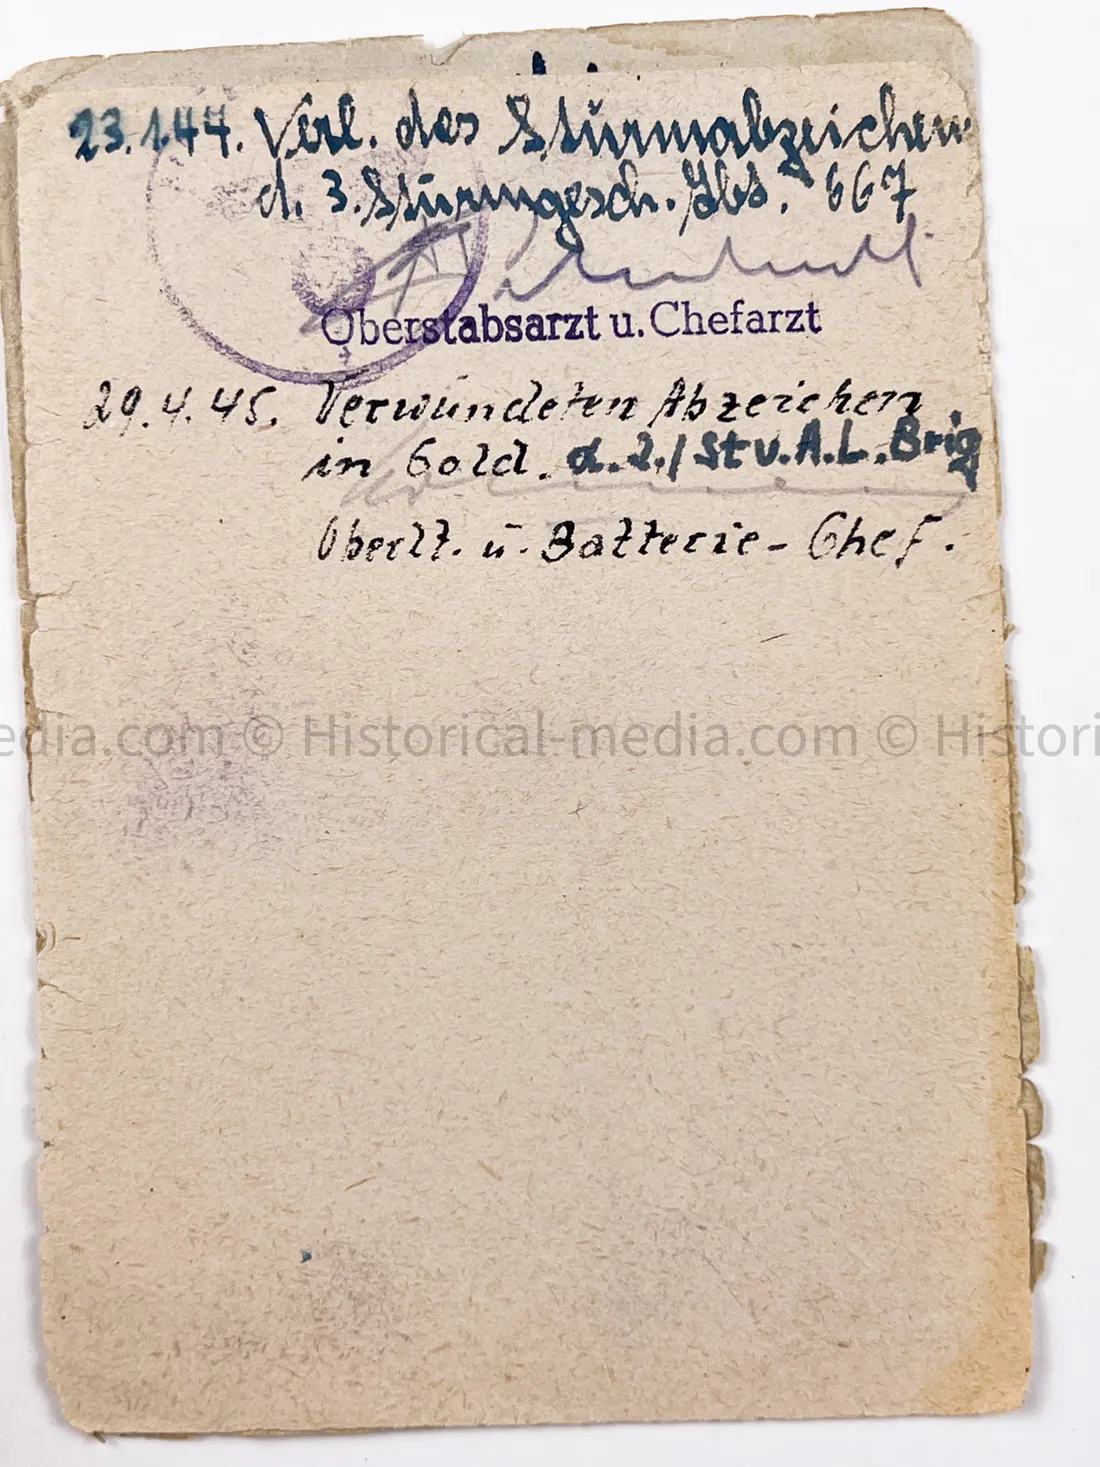 23.1.44. Verl. des Sturmabzeichen
d. 3. Sturmgesch. Abt. 667
Oberstabsarzt u. Chefarzt
29.4.45. Verwundeten Abzeichen
in Gold. d. 2./St v. A. L. Brig
Oberlt. u. Batterie-Chef.
edia.com © Historical-media.com © Histori